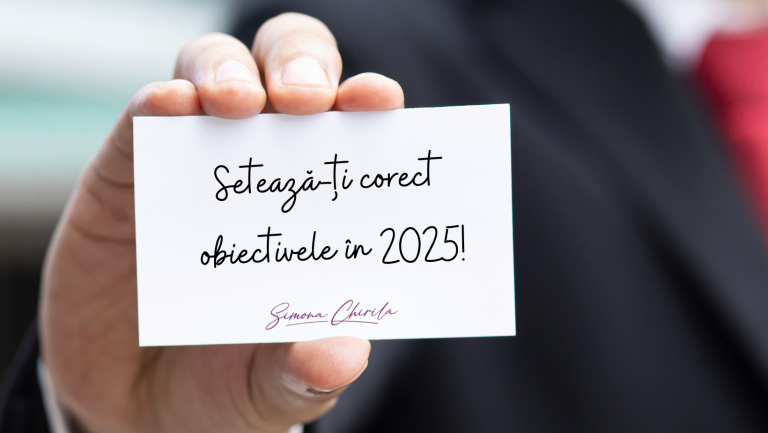 Setează-ți corect
obiectivele în 2025!
Simona Chirila